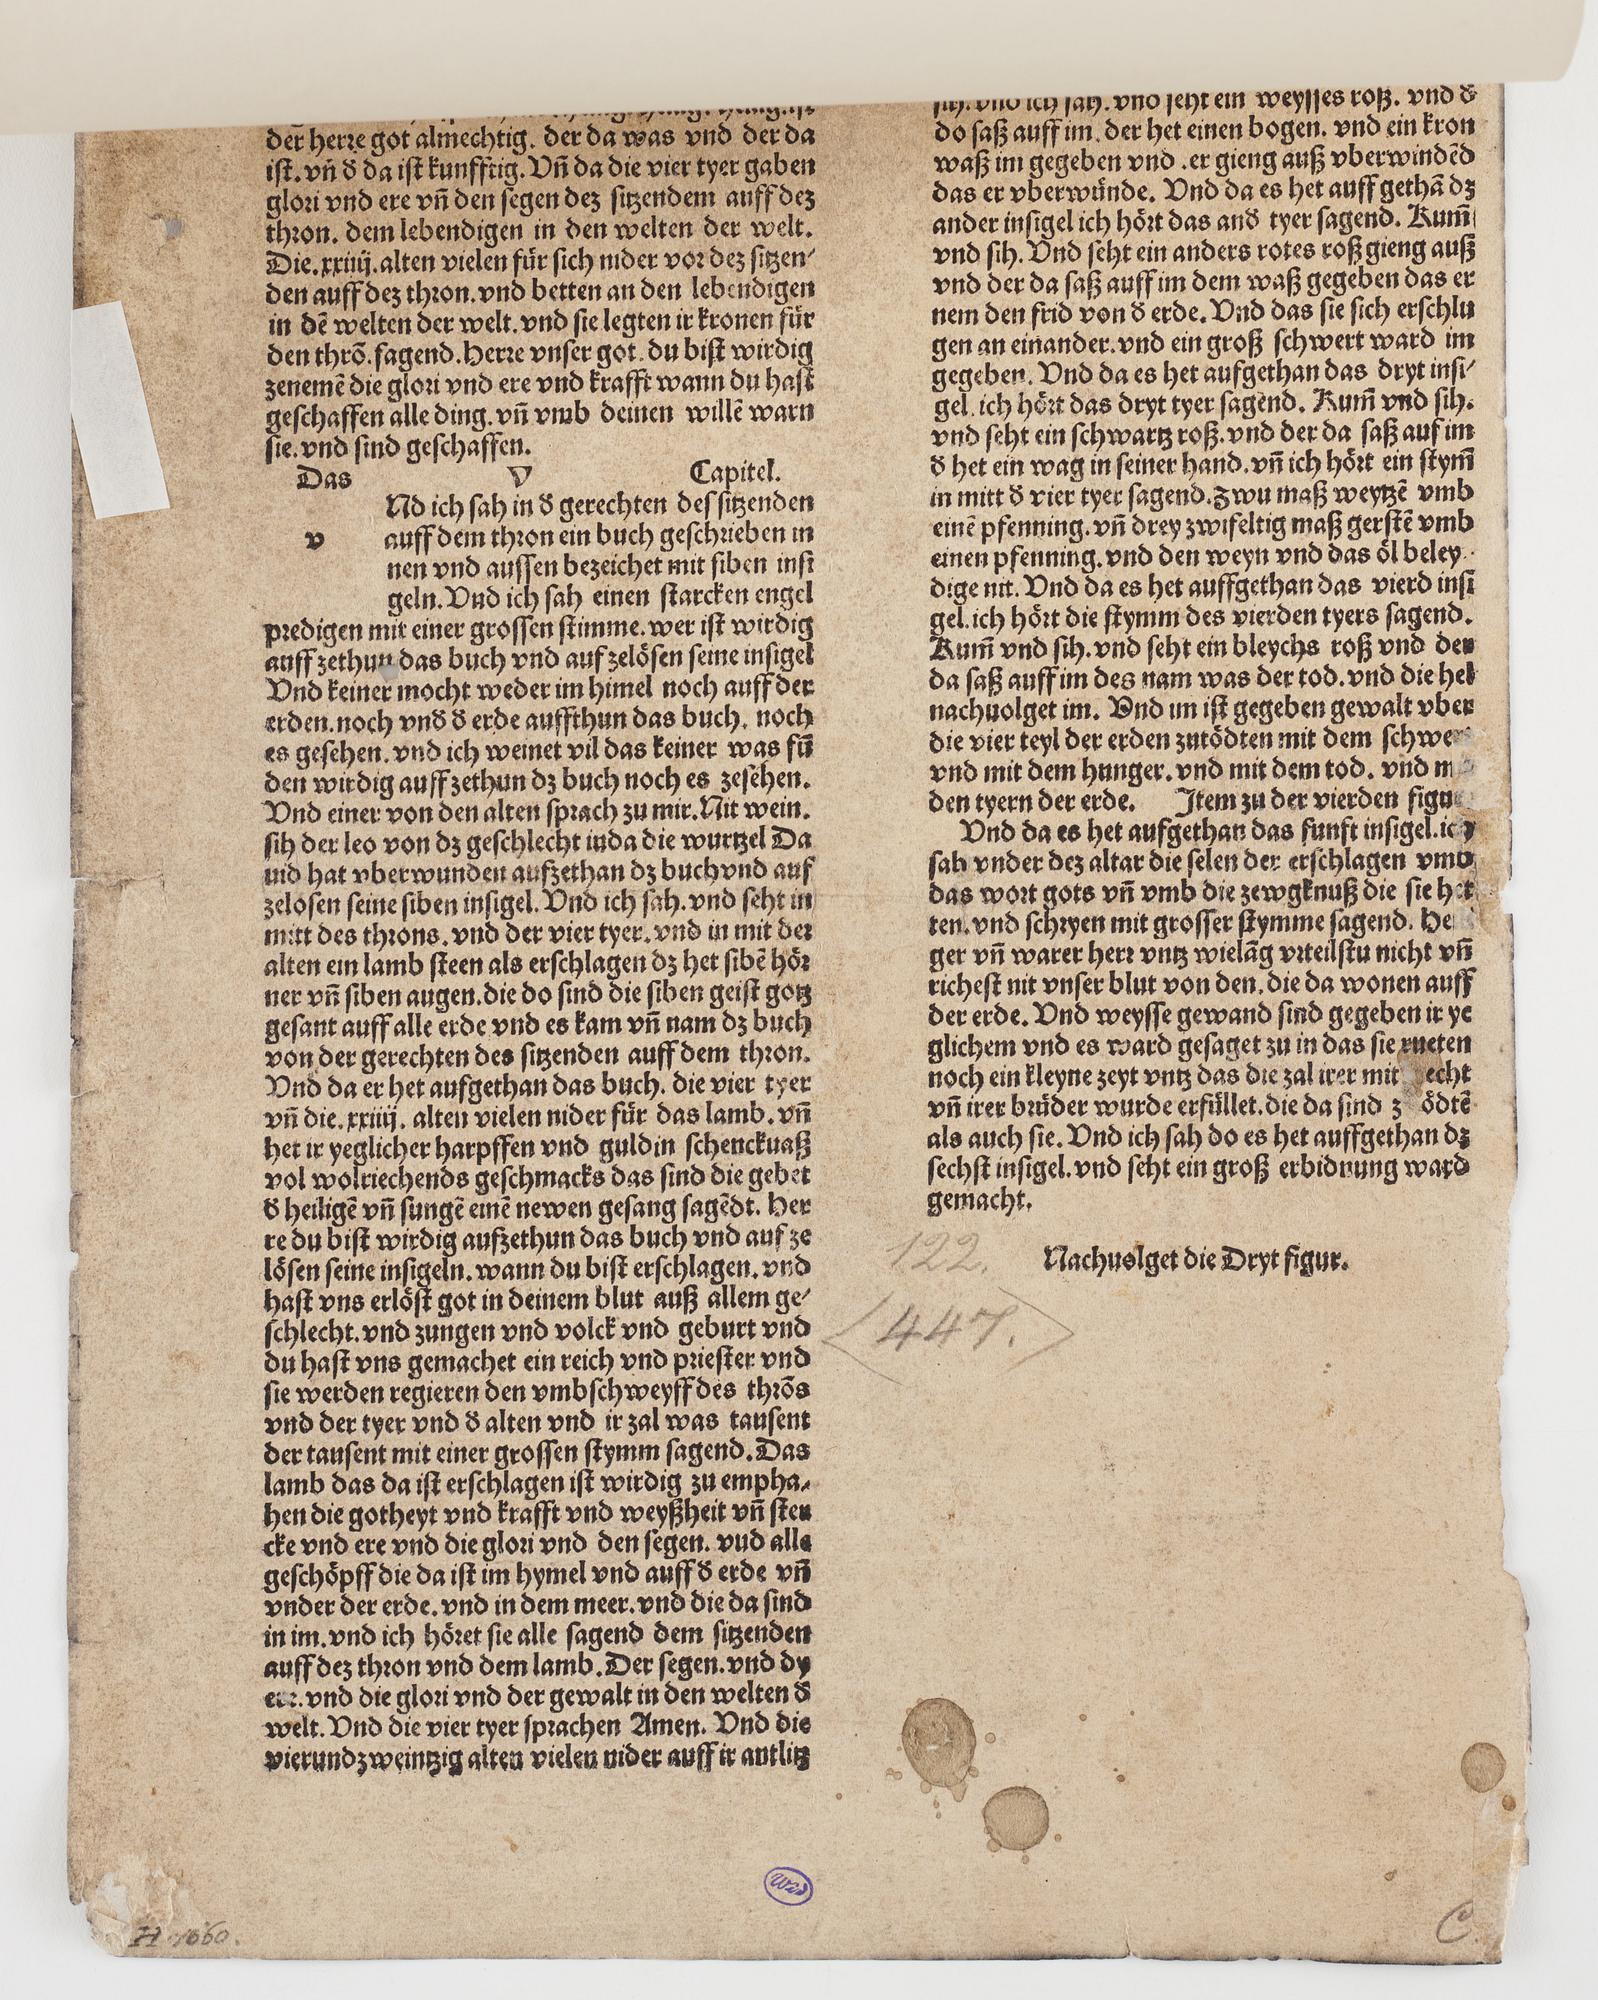 der herre got almechtig. der da was vnd der da
ist. vn̄ d̕ da ist kunfftig. Vn̄ da die vier tyer gaben
glori vnd ere vn̄ den segen dez sitzendem auff dez
thron. dem lebendigen in den welten der welt.
Die .xxiiij. alten vielen für sich nider vor dez sitzen⸗
den auff dez thron. vnd betten an den lebendigen
in dē welten der welt. vnd sie legten ir kronen für
den thrō. sagend. Herre vnser got. du bist wirdig
zenemē die glori vnd ere vnd krafft wann du hast
geschaffen alle ding. vn̄ vmb deinen willē warn
sie. vnd sind geschaffen.
Das V Capitel.
v Nd ich sah in d̕ gerechten des sitzenden
auff dem thron ein buch geschrieben in
nen vnd aussen bezeichet mit siben insi
geln. Vnd ich sah einen starcken engel
predigen mit einer grossen stimme. wer ist wirdig
auff zethun das buch vnd auf zelösen seine insigel
Vnd keiner mocht weder im himel noch auff der
erden. noch vnd̕ d̕ erde auffthun das buch. noch
es gesehen. vnd ich weinet vil das keiner was fū
den wirdig auff zethun dz buch noch es zesehen.
Vnd einer von den alten sprach zu mir. Nit wein.
sih der leo von dz geschlecht iuda die wurtzel Da
uid hat vberwunden aufzethan dz buch vnd auf
zelosen seine siben insigel. Vnd ich sah. vnd seht in
mitt des throns. vnd der vier tyer. vnd in mit der
alten ein lamb steen als erschlagen dz het sibē hör
ner vn̄ siben augen. die do sind die siben geist gotz
gesant auff alle erde vnd es kam vn̄ nam dz buch
von der gerechten des sitzenden auff dem thron.
Vnd da er het aufgethan das buch. die vier tyer
vn̄ die .xxiiij. alten vielen nider für das lamb. vn̄
het ir yeglicher harpffen vnd guldin schenckuaß
vol wolriechends geschmacks das sind die gebet
d̕ heiligē vn̄ sungē einē newen gesang sagēdt. Her
re du bist wirdig aufzethun das buch vnd auf ze
lösen seine insigeln. wann du bist erschlagen. vnd
hast vns erlöst got in deinem blut auß allem ge⸗
schlecht. vnd zungen vnd volck vnd geburt vnd
du hast vns gemachet ein reich vnd priester vnd
sie werden regieren den vmbschweyff des thrōs
vnd der tyer vnd d̕ alten vnd ir zal was tausent
der tausent mit einer grossen stymm sagend. Das
lamb das da ist erschlagen ist wirdig zu empha⸗
hen die gotheyt vnd krafft vnd weyßheit vn̄ ster
cke vnd ere vnd die glori vnd den segen. vnd alle
geschöpff die da ist im hymel vnd auff d̕ erde vn̄
vnder der erde. vnd in dem meer. vnd die da sind
in im. vnd ich höret sie alle sagend dem sitzenden
auff dez thron vnd dem lamb. Der segen. vnd dy
eer. vnd die glori vnd der gewalt in den welten d̕
welt. Vnd die vier tyer sprachen Amen. Vnd die
vierundzweintzig alten vielen nider auff ir antlitz
sih. vnd ich sah. vnd seht ein weysses roß. vnd d̕
do saß auff im. der het einen bogen. vnd ein kron
waß im gegeben vnd .er gieng auß vberwindēd
das er vberwünde. Vnd da es het auff gethā dz
ander insigel ich hört das and̕ tyer sagend. Kum̄
vnd sih. Vnd seht ein anders rotes roß gieng auß
vnd der da saß auff im dem waß gegeben das er
nem den frid von d̕ erde. Vnd das sie sich erschlu
gen an einander. vnd ein groß schwert ward im
gegeben. Vnd da es het aufgethan das dryt insi⸗
gel. ich hört das dryt tyer sagend. Kum̄ vnd sih.
vnd seht ein schwartz roß. vnd der da saß auf im
d̕ het ein wag in seiner hand. vn̄ ich hört ein stym̄
in mitt d̕ vier tyer sagend. zwu maß weytzē vmb
einē pfenning. vn̄ drey zwifeltig maß gerstē vmb
einen pfenning. vnd den weyn vnd das öl beley⸗
dige nit. Vnd da es het auffgethan das vierd insi
gel. ich hört die stymm des vierden tyers sagend.
Kum̄ vnd sih. vnd seht ein bleychs roß vnd der
da saß auff im des nam was der tod. vnd die hel
nachuolget im. Vnd im ist gegeben gewalt vber
die vier teyl der erden zutödten mit dem schwer
vnd mit dem hunger. vnd mit dem tod. vnd m
den tyern der erde. Item zu der vierden figur
Vnd da es het aufgethan das funft insigel. ich
sah vnder dez altar die selen der erschlagen vmb
das wort gots vn̄ vmb die zewgknuß die sie het
ten. vnd schryen mit grosser stymme sagend. He
ger vn̄ warer herr vntz wielāg vrteilstu nicht vn̄
richest nit vnser blut von den. die da wonen auff
der erde. Vnd weysse gewand sind gegeben ir ye
glichem vnd es ward gesaget zu in das sie rueten
noch ein kleyne zeyt vntz das die zal irer mit echt
vn̄ irer brüder wurde erfüllet. die da sind z ödtē
als auch sie. Vnd ich sah do es het auffgethan dz
sechst insigel. vnd seht ein groß erbidnung ward
gemacht.
122.
Nachuolget die Dryt figur.
447.
H 1660.
C